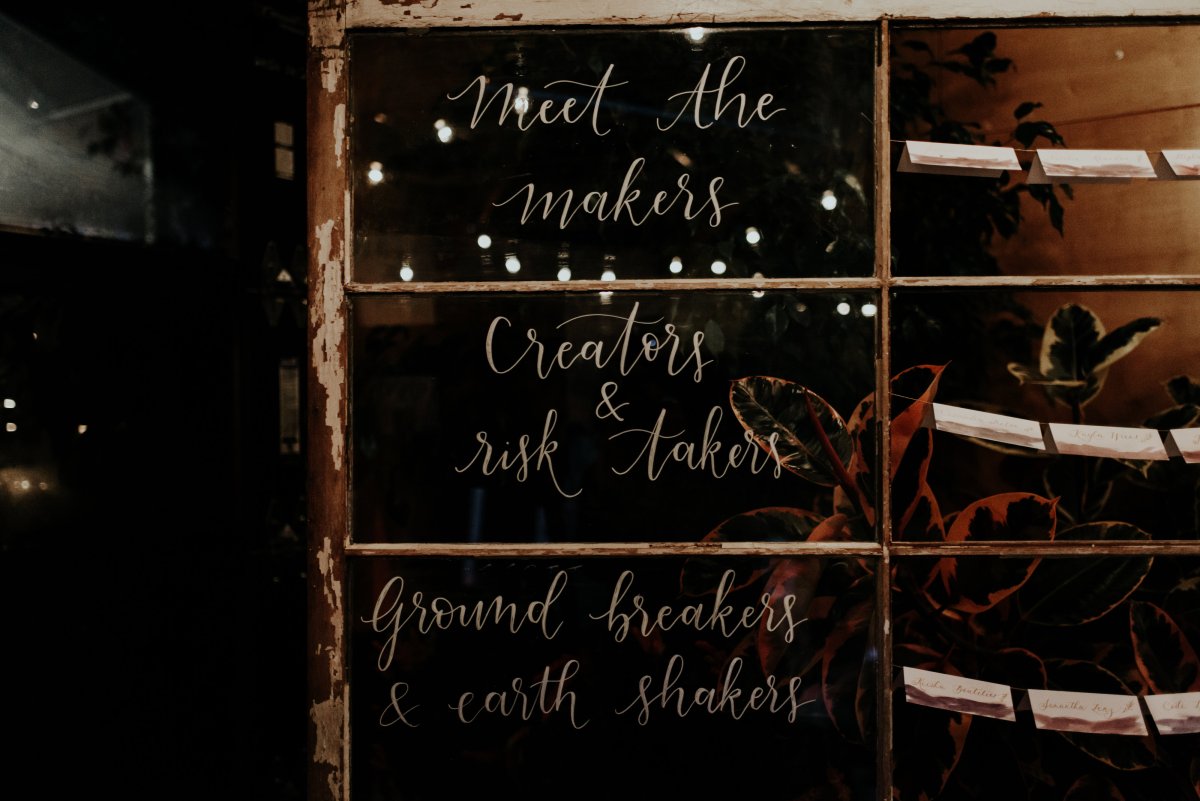 Meet the
makers
Creators
&
risk takers
Ground breakers
& earth shakers
Samantha